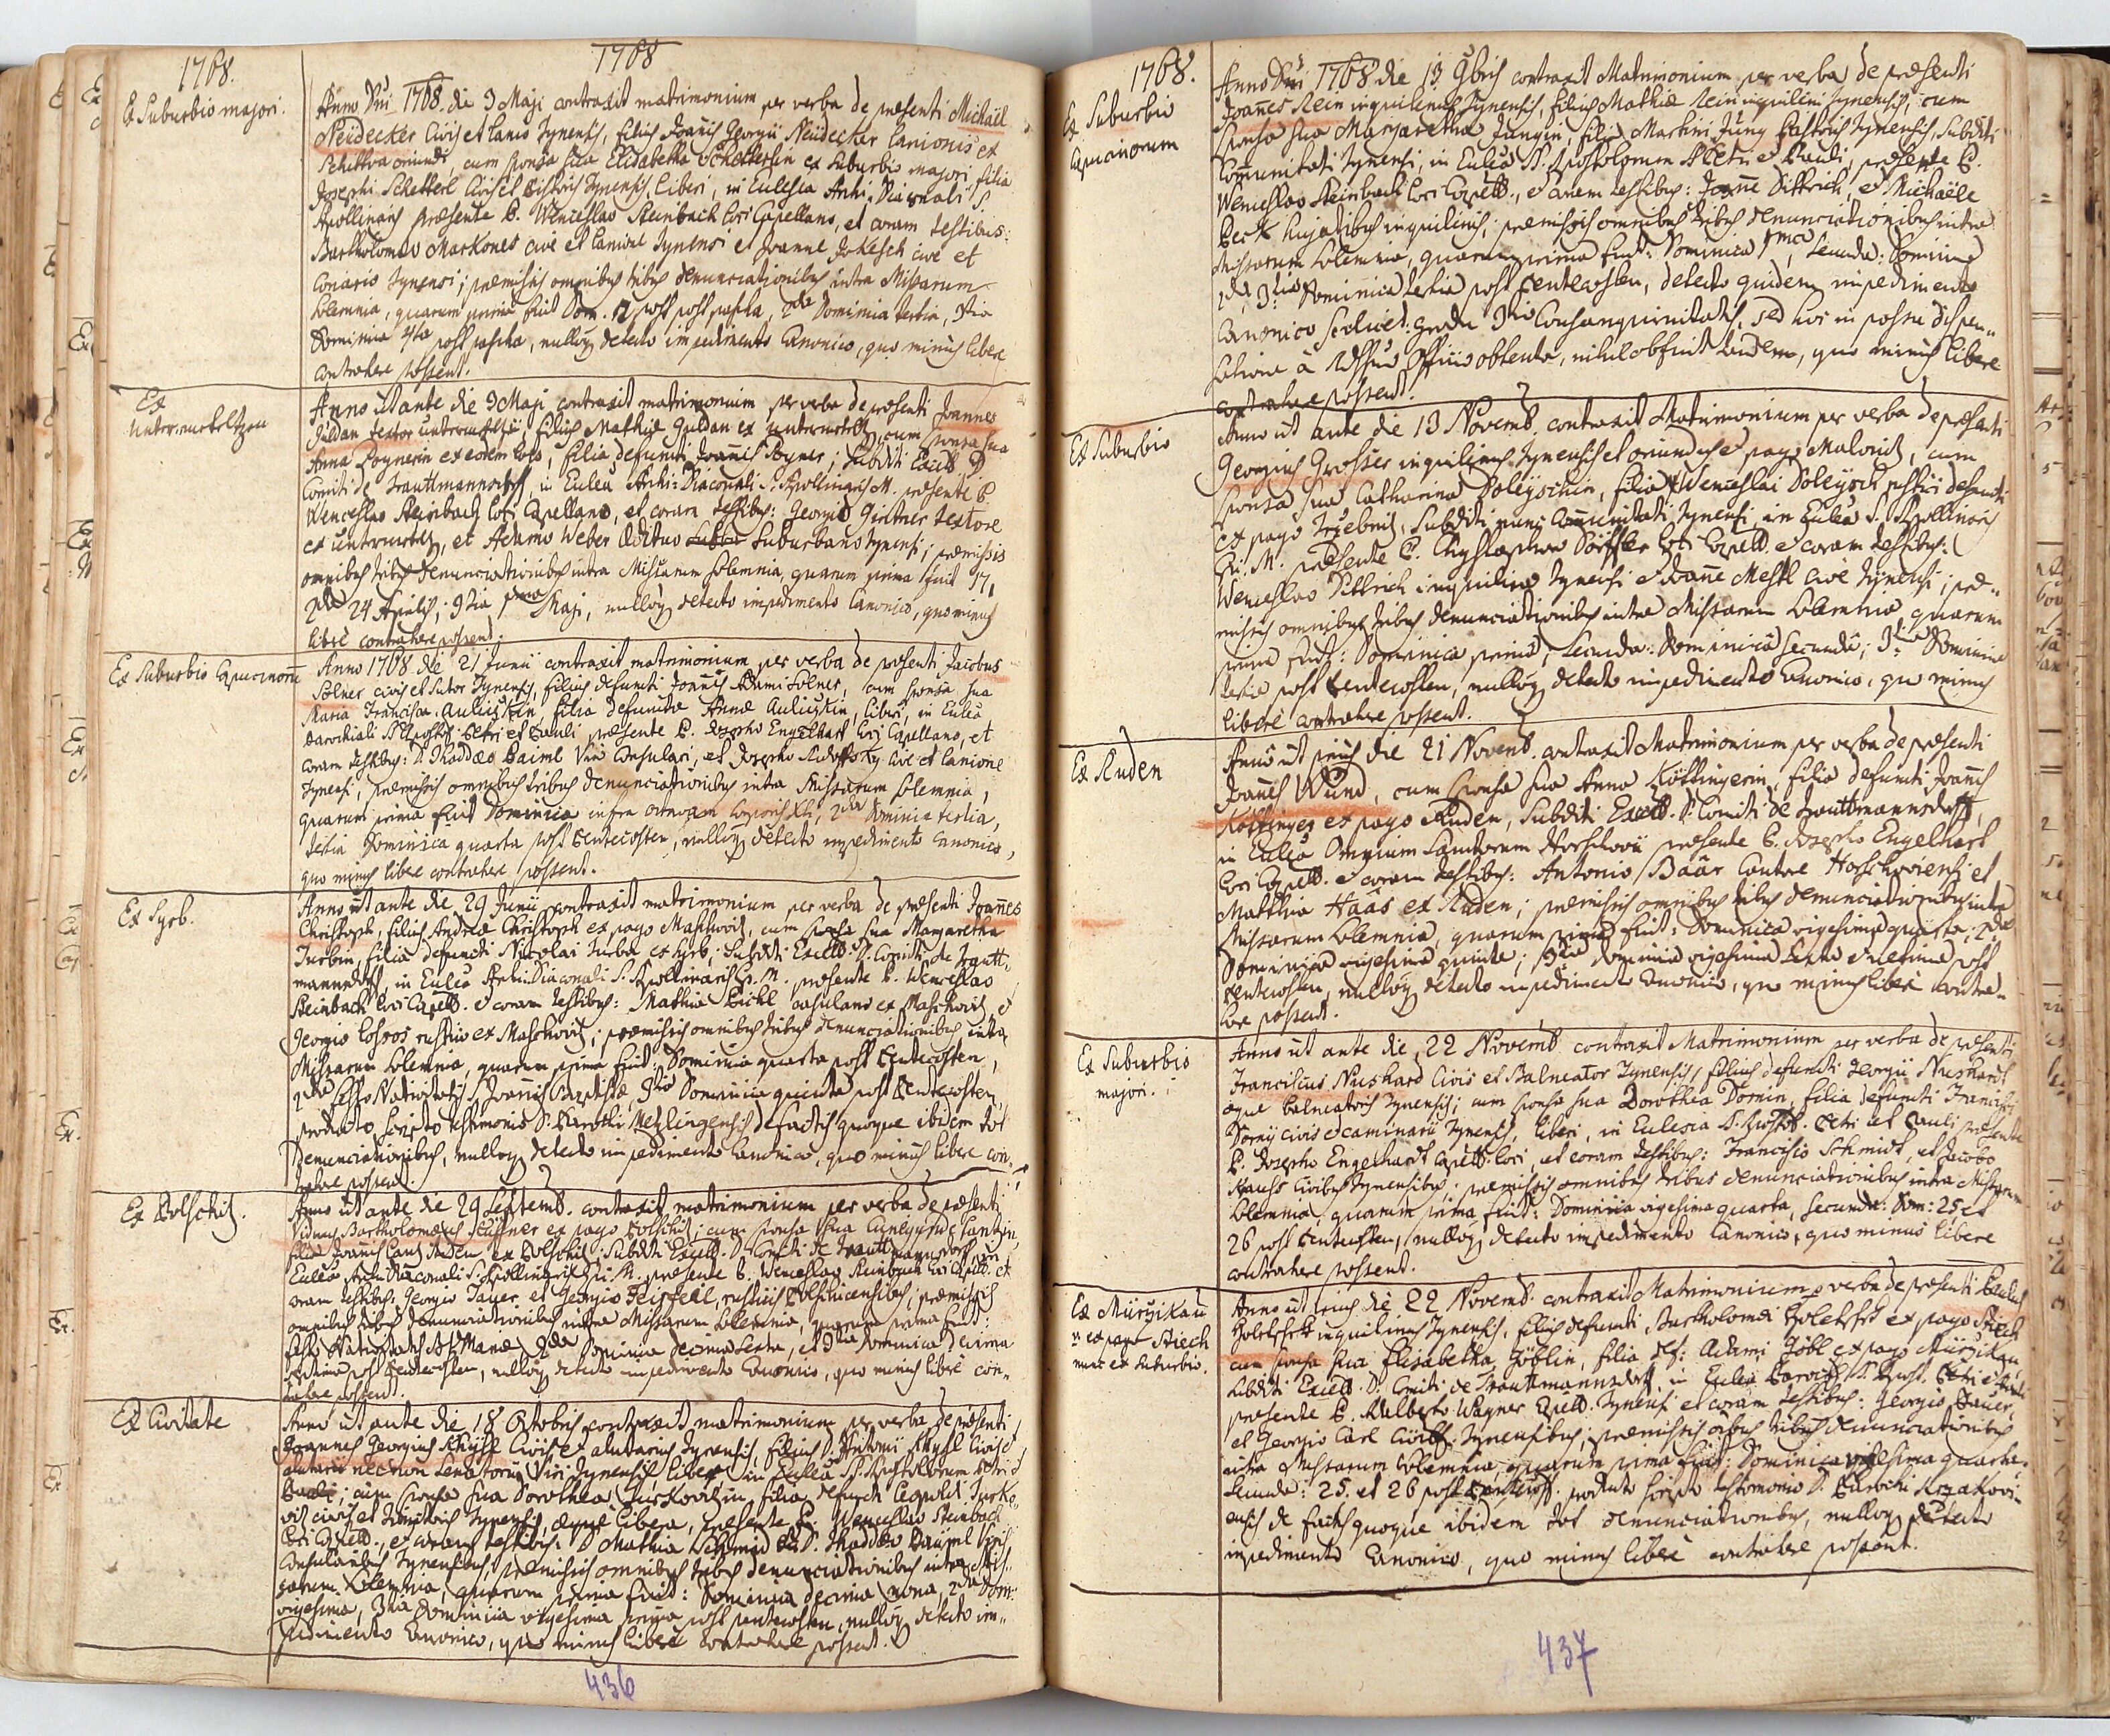 1768.
1768
Ex Suburbio majori.
Anno Dni 1768. die 3 Maji contraxit matrimonium per verba de praesenti Michaël
Neüdecker Civis et Lanio Tynensis, filius Joanis Georgii Neüdecker Lanionis ex
oriundi cum sponsa sua Elisabetha Schetterlin ex Suburbio majori filia
Josephi Schetterl Civis et Tynensis, liberi, in Ecclesia Archi-Diaconali S.
Apollinaris praesente P. Wenceslao Steinbach loci Capellano, et coram testibus:
Bartholomaeo Markones cive et Lanione Tynensi et Joanne Jokesch cive et
Coriario Tynensi; praemissis omnibus tribus denunciationibus intra Missarum
Solemnia, quarum prima fuit Dom. 2 post pascha, 2da Dominica tertia, 3tia
Dominica 4ta post pascha, nulloq detecto impedimento Canonico, quo minus libere
contrahere possent.
Ex
Untermeteltzen
Anno ut ante die 3 Maji contraxit matrimonium per verba de praesenti Joannes
Guldan textor filius Mathiae Guldan ex cum sponsa sua
Anna Poÿnerin ex eodem loco, filia defuncti Joanis Poÿner; subditi Excell. D.
Comiti de Trauttmannsdorff, in Ecclea Archi-Diaconali S. Apollinaris M. praesente P.
Wenceslao Steinbach loci Capellano, et coram testibus: Georgio Girtner textore
ex et Adamo Weber Suburbano Tynensi; praemissis
omnibus tribus denunciationibus intra Missarum solemnia, quarum prima fuit 17,
2da 24 Aprilis, 3tia 1ma Maji, nulloq detecto impedimento Canonico, quo minus
libere contrahere possent.
Ex Suburbio Capucinorū
Anno 1768 die 21 Junii contraxit matrimonium per verba de praesenti Jacobus
Solner civis et sutor Tynensis, filius defuncti Joanis Adami Solner, cum sponsa sua
Maria Francisca Aulicskin filia defunctae Annae Aulicskin, liberi, in Ecclea
Parochiali SS. Apostol. Petri et Pauli praesente P. Josepho Engelhart loci Capellano, et
coram testibus: D. Thaddaeo Baiml Viro Consulari, et Josepho cive et Lanione
Tynensi, praemissis omnibus tribus denunciationibus intra Missarum Solemnia,
quarum prima fuit Dominica infra octavam Corporis Xti, 2da Dominica tertia,
tertia Dominica quarta post Pentecosten, nulloq detecto impedimento Canonico,
quo minus libere contrahere possent.
Ex Syrb.
Anno ut ante die 29 Junii contraxit matrimonium per verba de praesenti Joañes
Christoph, filius Andreae Christoph ex pago Maschovitz, cum sponsa sua Margaretha
Turbin, filia defuncti Nicolai Turba ex Syrb; subditi Excell. D. Comiti de Trautt-
mannsdorff, in Ecclea Archi-Diaconali S. Apollinaris Ep. M. praesente P. Wenceslao
Steinbach loci Capell. et coram testibus: Mathia Pichl casulano ex Maschovitz et
Georgio rustico ex Maschovitz; praemissis omnibus tribus denunciationibus intra
Missarum Solemnia, quarum prima fuit: Dominica quarta post Pentecosten,
2da festo Nativitatis S. Joannis Baptistae, 3tia Dominica quinta post Pentecosten,
producto scripto testimonio D. Parochi Metzlingensis de factis quoque ibidem tot
Denunciationibus, nulloq detecto impedimento Canonico, quo minus libere con-
trahere possent.
Ex Polschitz.
Anno ut ante die 29 Septemb. contraxit matrimonium per verba de praesenti
Viduus Bartholomaeus ex pago Polschitz; cum sponsa sua Cunegunde
filia Joanis ex Polschitz; subditi Excell. D. Comiti de Trauttmannsdorff in
Ecclea Archi-Diaconali S. Apollinaris Ep. M. praesente P. Wenceslao Steinbach loci Capell. et
coram testibus: Georgio Tauer et Georgio rusticis Polschicensibus; praemissis
omnibus tribus denunciationibus intra Missarum Solemnia, quarum prima fuit:
festo Nativitatis B. Mariae, 2da Dominica decima sexta, et 3tia Dominica decima
septima post Pentecosten, nulloq detecto impedimento Canonico, quo minus libere con-
trahere possent.
Ex Civitate
Anno ut ante die 18 Octobris contraxit matrimonium per verba de praesenti
Joannes Georgius Civis et alutarius Tynensis, filius D. Antonii Civis et
alutarii necnon Senatorii Viri Tynensis, liber, in Ecclea SS. Apostolorum Petri et
Pauli; cum sponsa sua Dorothea Jurkovitzin filia defuncti Leopoldi Jurko-
vitz civis et Tynensis, aeque libera, praesente P. Wenceslao Steinbach
loci Capell., et coram testibus: D. Mathia Schmid et D. Thaddaeo Baiiml Viris
Consularibus Tynensibus, praemissis omnibus tribus denunciationibus intra Mis-
sarum Solemnia, quarum prima fuit: Dominica decima nona, 2da Dom:
vigesima, 3tia Dominica vigesima prima post pentecosten, nulloq detecto im-
pedimento Canonico, quo minus libere contrahere possent.
436
1768.
Ex Suburbio
Capucinorum
Anno Dni 1768 die 13 9bris contraxit Matrimonium per verba de praesenti
Joañes Rein inquilinus Tynensis, filius Mathiae Rein inquilini Tynensis, cum
sponsa sua Margaretha Jungin, filia Martini Jung Tynensis, subditi
Comunitati Tynensi, in Ecclea SS. Apostolorum Petri et Pauli, praesente P.
Wenceslao Steinbach loci Capell., et coram testibus: Joanne Dittrich, et Michaële
Beck hujatibus inquilinis; praemissis omnibus tribus denunciationibus intra
Missarum Solemnia, quarum prima fuit: Dominica 1ma, Secunda: Dominica
2da, 3tia Dominica tertia post Pentecosten, detecto quidem impedimento
Canonico scilicet: gradu 3tio Consanguinitatis, sed hoc in passu dispen-
satione à Rdssimo Officio obtenta, nihil obfuit tandem, quo minus libere
contrahere possent.
Ex Suburbio
Anno ut ante die 13 Novemb. contraxit Matrimonium per verba de praesenti
Georgius Grosser inquilinus Tynensis et oriundus e pago Malonitz, cum
sponsa sua Catharina Poleyschin, filia Wenceslai Poleysch rustici defuncti
ex pago Trzebnitz, subditi nunc Comunitati Tynensi, in Ecclea S. Apollinaris
Ep. M. praesente P. Christophoro Döffler loci Capell. et coram testibus:
Wenceslao Dittrich inquilino Tynensi et Joane Mestl cive Tynensi; prae-
missis omnibus tribus denunciationibus intra Missarum Solemnia, quarum
prima fuit: Dominica prima; Secunda: Dominica secunda; 3tia Dominica
tertia post Pentecosten, nulloq detecto impedimento Canonico, quo minus
libere contrahere possent.
Ex Ruden
Anno ut prius die 21 Novemb. contraxit Matrimonium per verba de praesenti
Joanes Wünd, cum sponsa sua Anna Köttingerin, filia defuncti Joannis
Köttinger ex pago Ruden, subditi Excell. D. Comiti de Trauttmannsdorff,
in Ecclea Omnium Sanctorum Horschovii praesente P. Josepho Engelhart
loci Capell. et coram testibus: Antonio Báár Cantore Horschoviensi et
Matthia Haas ex Ruden; praemissis omnibus tribus denunciationibus intra
Missarum Solemnia, quarum prima fuit: Dominica vigesima quarta; 2da
Dominica vigesima quinta; 3tia Dominica vigesima sexta et ultima post
Pentecosten, nulloq detecto impedimento Canonico, quo minus libere contra-
here possent.
Ex Suburbio
majori.
Anno ut ante die 22 Novemb. contraxit Matrimonium per verba de praesenti
Franciscus Nushard Civis et Balneator Tynensis, filius defuncti Georgii Nushardt
aeque balneatoris Tynensis; cum sponsa sua Dorothea Dornin, filia defuncti Francisci
civis et caminarii Tynensis, liberi, in Ecclesia SS. Apostol. Petri et Pauli praesente
P. Josepho Engelhardt Capell. loci, et coram testibus: Francisco Schmidt, et Jacobo
Krauss Civibus Tynensibus; praemissis omnibus tribus denunciationibus intra Missarum
Solemnia, quarum prima fuit: Dominica vigesima quarta, Secunda: Dom: 25 et
26 post Pentecosten, nulloq detecto impedimento Canonico, quo minus libere
contrahere possent.
Ex Mürzikau
ex pago Stiech
nunc ex Suburbio.
Anno ut prius die 22 Novemb. contraxit Matrimonium p verba de praesenti Paulus
inquilinus Tynensis, filius defuncti Bartholomaei ex pago Stiech
cum sponsa sua Elisabetha Jöblin, filia def: Adami Jöbl ex pago Mürzikau
subditi Excell. D. Comiti de Trauttmannsdorff, in Ecclea Paroch. SS. Apost. Petri et Pauli
praesente P. Adalberto Wagner Capell. Tynensi et coram testibus: Georgio Bauer
et Georgio Carl Civibus Tynensibus, praemissis oibus tribus denunciationibus
intra Missarum Solemnia, quarum prima fuit: Dominica vigesima quarta.
Secunda: 25. et 26 post Pentecost. producto scripto testimonio D. Parochi Krzakovi-
ensis de factis quoque ibidem tot denunciationibus, nulloq detecto
impedimento Canonico, quo minus libere contrahere possent.
437